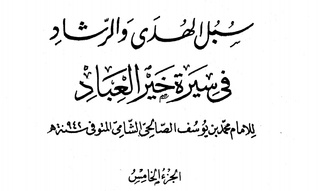 سُبُل الهُدَى وَالرَّشاد
في سِيرَة خَيرِ العِبَادِ
للإمام محمد بن يوسف الصالحي الشامي المتوفى سنة ٩٤٢ هـ
الجزء الخامس